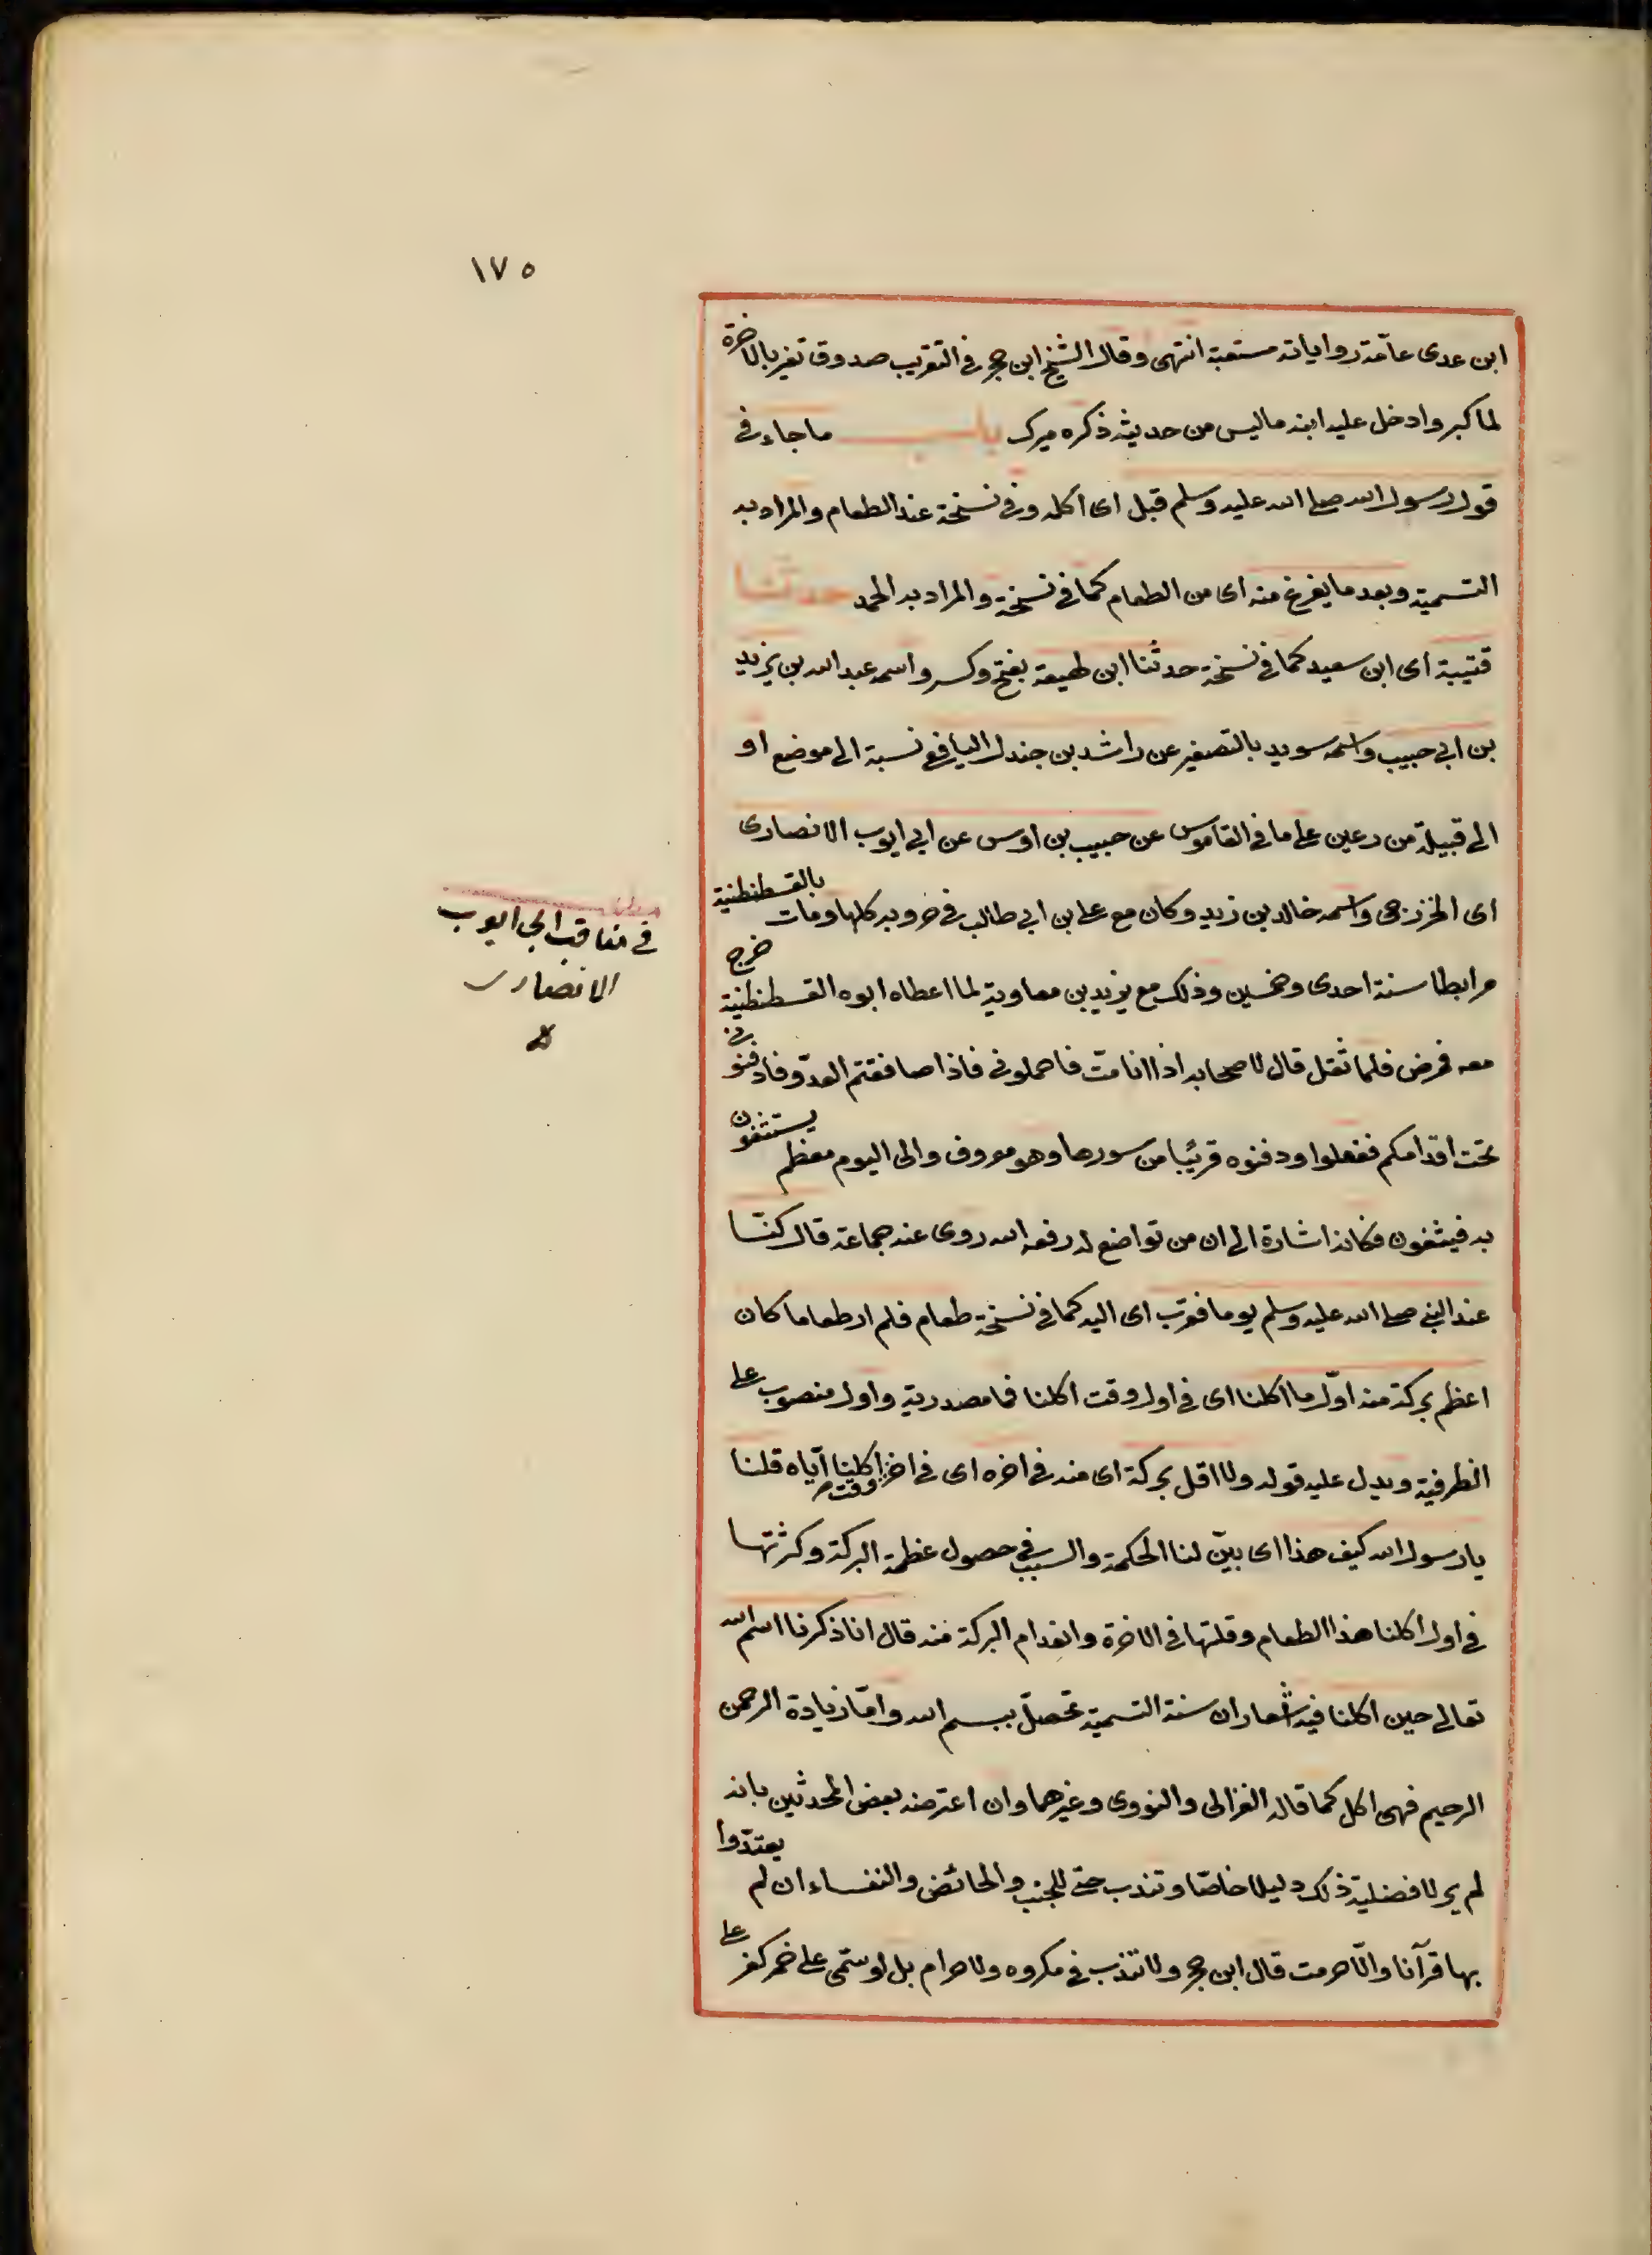 ١٧٥
ابن عدى عامّة رواياته مستقيمة انتهى وقال الشيخ ابن حجر فى التقريب صدوق تغير بالاخرة
لما كبر وادخل عليه ابنه ماليس من حديثه ذكره ميرك باب ماجاء فى
قول رسول الله صلى الله عليه وسلم قبل اى اكله وفى نسخة عند الطعام والمراد به
التسمية وبعد ما يفرغ منه اى من الطعام كما فى نسخة والمراد به الحمد حدثنا
قتيبة اى ابن سعيد كما فى نسخة حدثنا ابن لهيعة بفتح وكسر واسمه عبد الله بن يزيد
بن ابى حبيب واسمه سويد بالتصغير عن راشد بن جندل اليافعى نسبة الى موضع او
الى قبيلة من رعين على ما فى القاموس عن حبيب بن اوس عن ابى ايوب الانصارى
اى الخزرجى واسمه خالد بن زيد وكان مع على بن ابى طالب فى حروبه كلها ومات بالقسطنطنية
مرابطا سنة احدى وخمسين وذلك مع يزيد بن معاوية لما اعطاه ابوه القسطنطنية خرج
معه فمرض فلما ثقل قال لاصحابه اذا انا متّ فاحملونى فاذا صاففتم العدوّ فادفنونى
تحت اقدامكم ففعلوا ودفنوه قريبا من سورها وهو معروف والى اليوم معظم يستشفون
به فيشفون فكانه اشارة الى ان من تواضع لله رفعه الله روى عنه جماعة قال كنّا
عند النبى صلى الله عليه وسلم يوما فقرّب اى اليه كما فى نسخة طعام فلم ار طعاما كان
اعظم بركة منه اوّل ما اكلنا اى فى اول وقت اكلنا فما مصدرية واول منصوب على
الظرفية ويدل عليه قوله ولا اقل بركة اى منه فى اخره اى فى اخر وقت اكلنا ايّاه قلنا
يا رسول الله كيف هذا اى بيّن لنا الحكمة والسبب فى حصول عظمة البركة وكثرتها
فى اول اكلنا هذا الطعام وقلتها فى الاخرة وانعدام البركة منه قال انا ذكرنا اسم الله
تعالى حين اكلنا فيه اشعار ان سنة التسمية تحصل ببسم الله وامّا زيادة الرحمن
الرحيم فهى اكل كما قاله الغزالى والنووى وغيرهما وان اعترضه بعض المحدثين بانه
لم ير لافضلية ذلك دليلا خاصّا وتندب حتى للجنب والحائض والنفساء ان لم يعتدّوا
بها قرآنا والّا حرمت قال ابن حجر ولا تندب فى مكروه ولا حرام بل لو سمّى على خمر كفر على
فى مناقب ابى ايوب
الانصارى